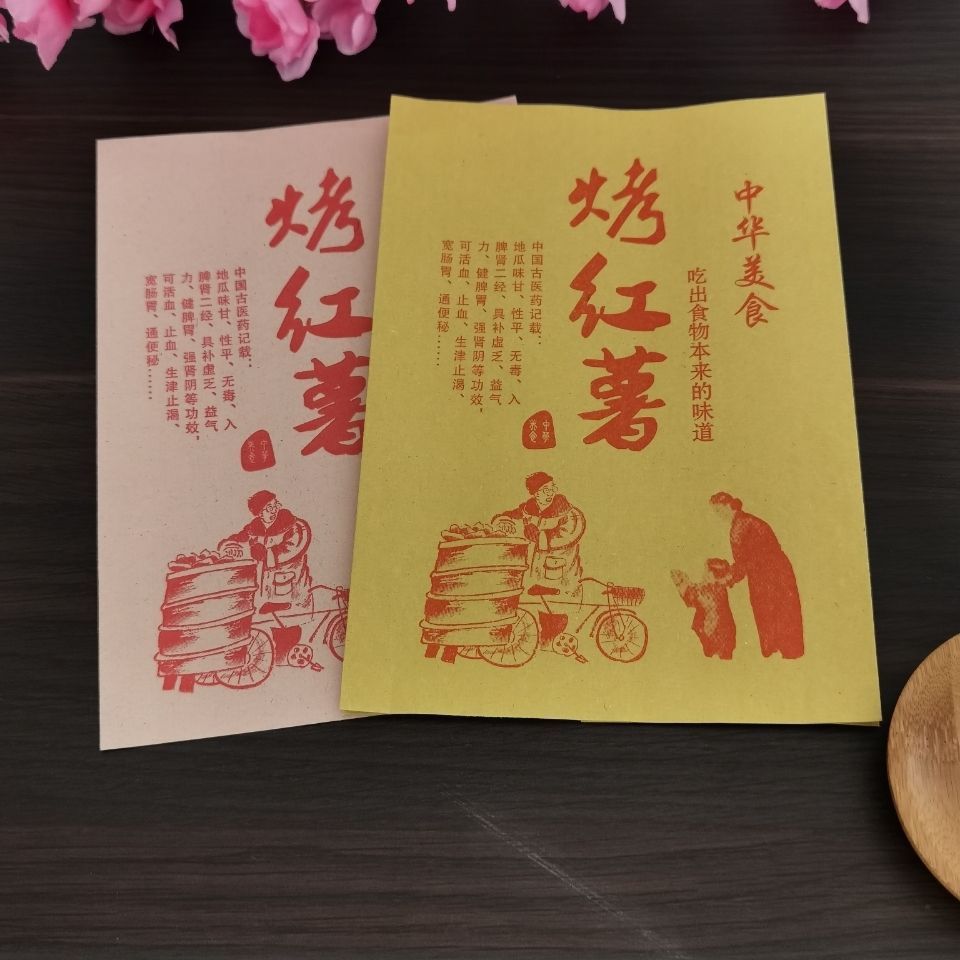 中华美食
吃出食物本来的味道
烤红薯
中国古医药记载：
地瓜味甘、性平、无毒、入
脾肾二经、具补虚乏、益气
力、健脾胃、强肾阴等功效，
可活血、止血、生津止渴、
宽肠胃、通便秘……
中華
美食
烤红薯
中国古医药记载：
地瓜味甘、性平、无毒、入
脾肾二经、具补虚乏、益气
力、健脾胃、强肾阴等功效，
可活血、止血、生津止渴、
宽肠胃、通便秘……
中華
美食